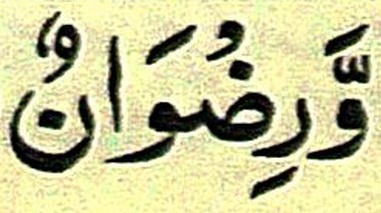 وَّرِضْوَانٌ